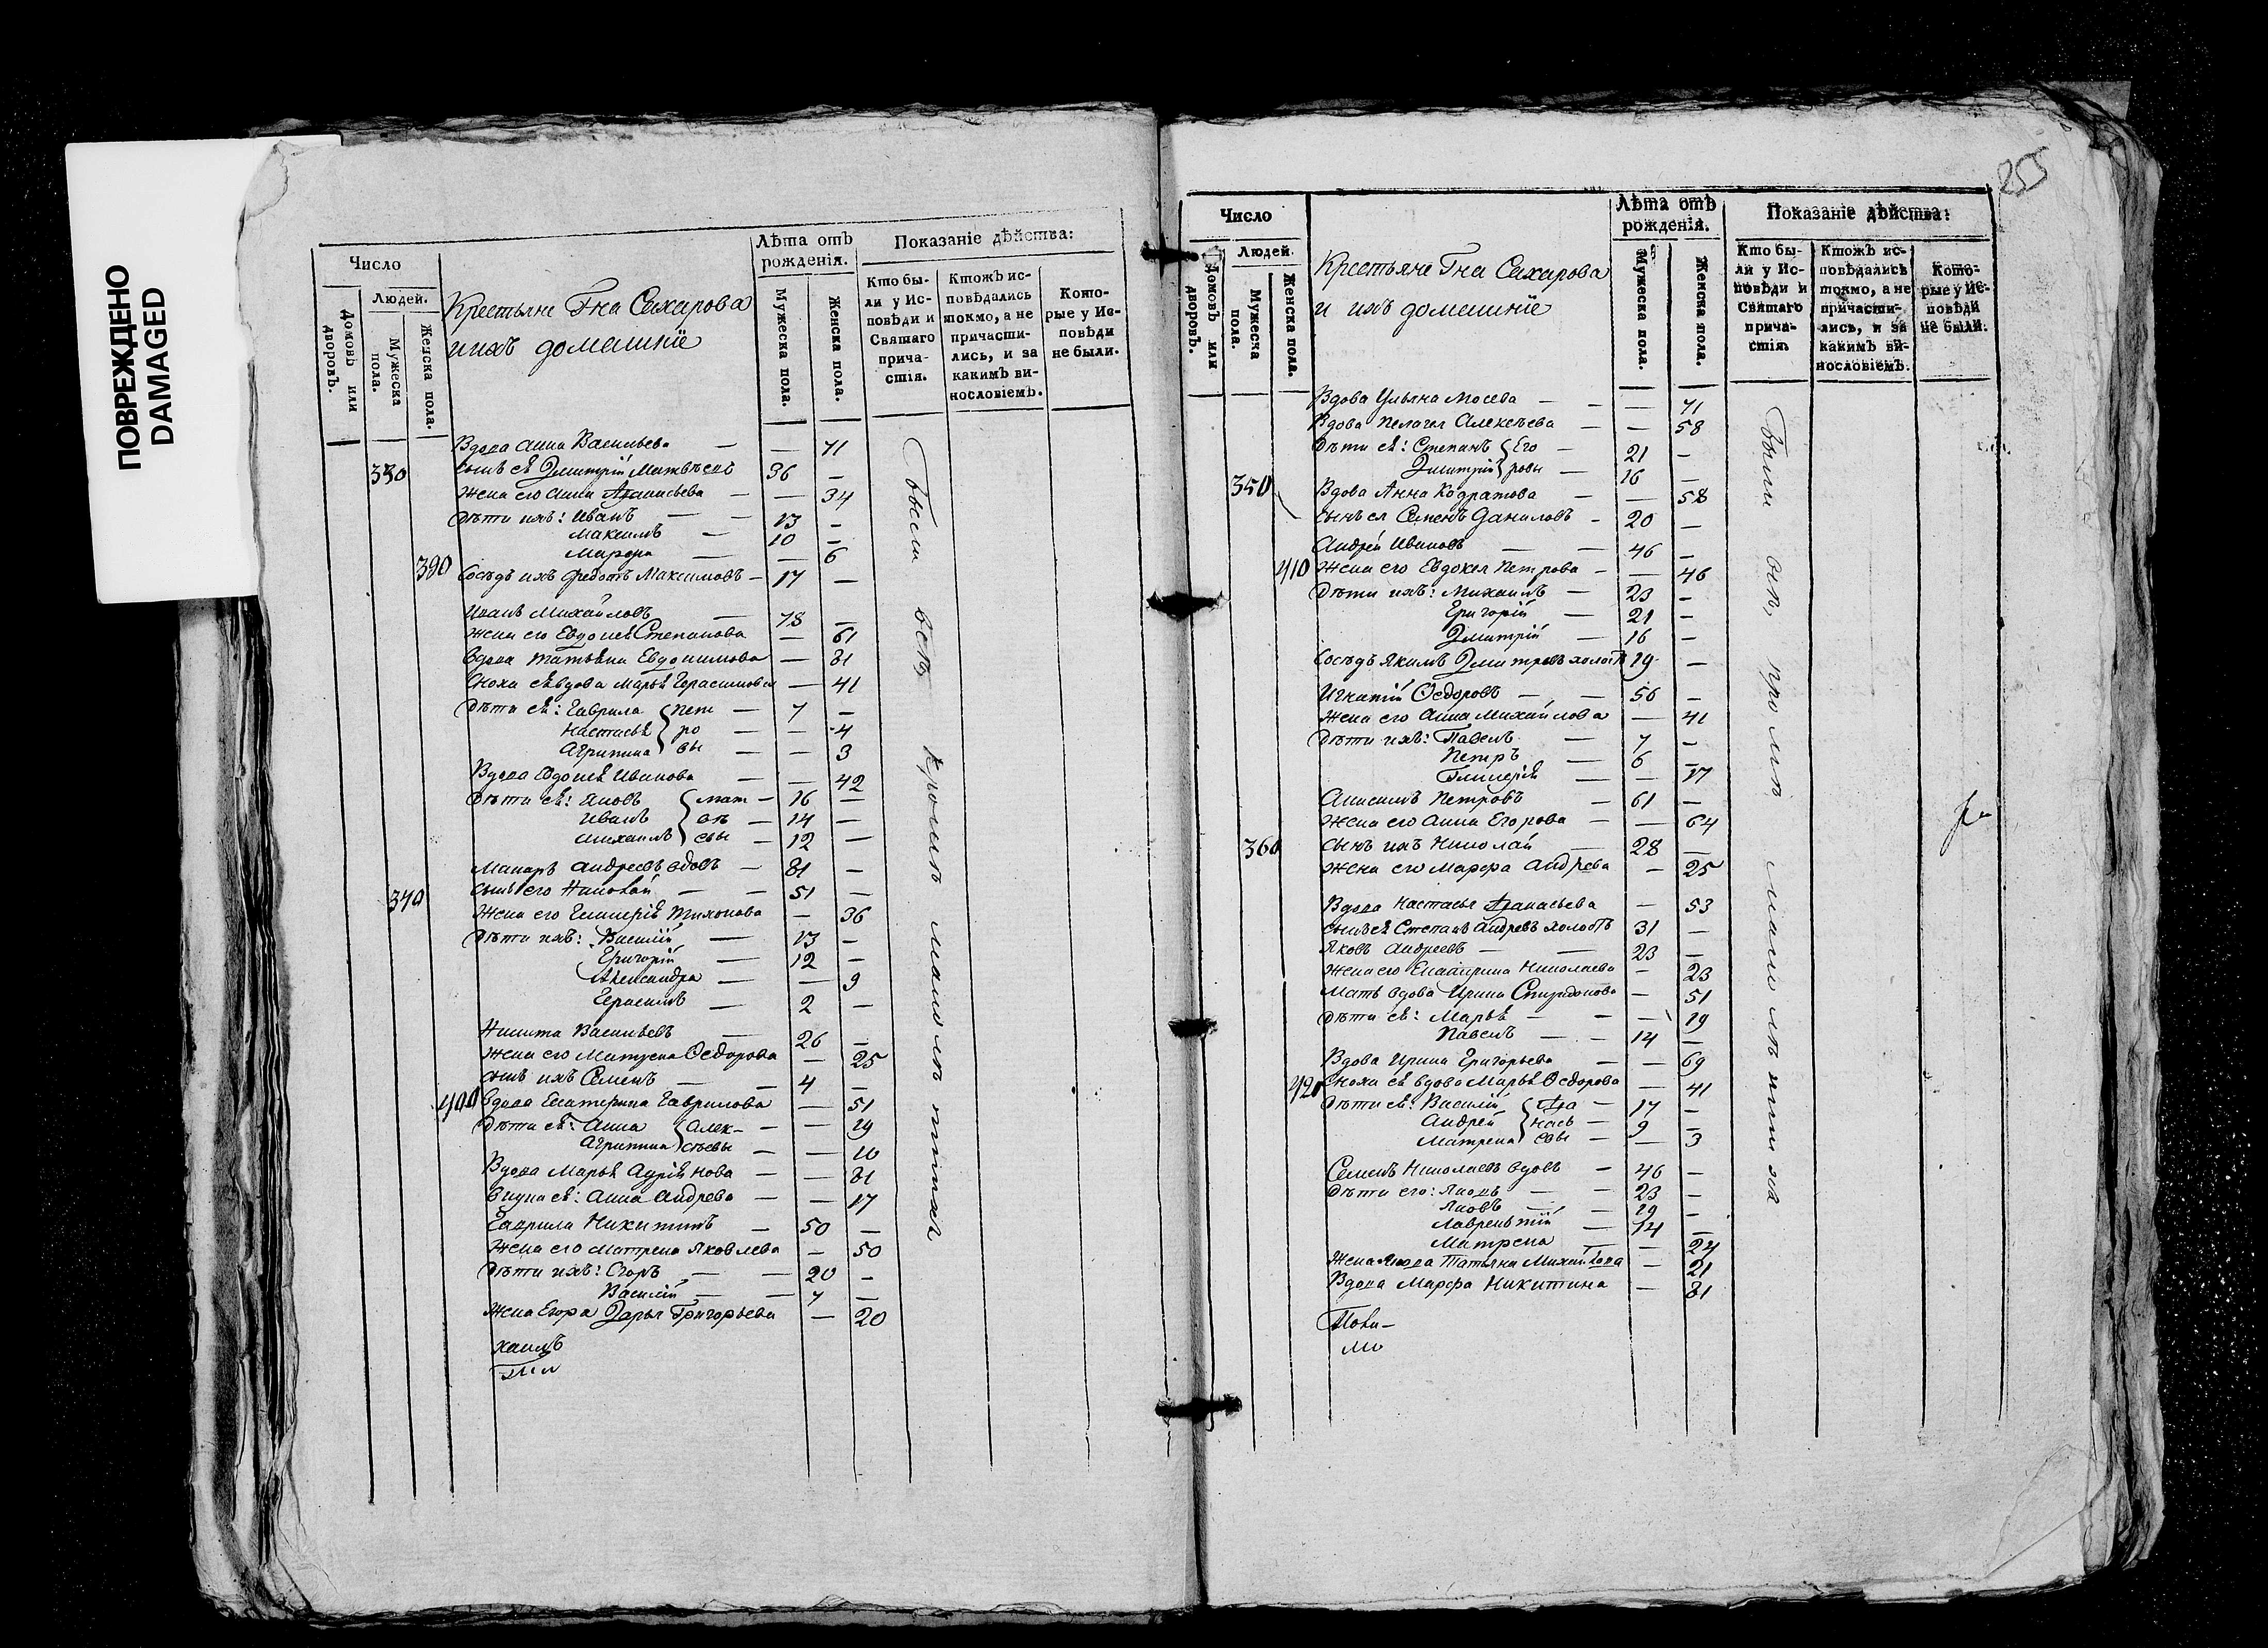 ПОВРЕЖДЕНО
DAMAGED
Число
Людей.
Домовъ или дворовъ.
Мужеска пола.
Женска пола.
Крестьяне Гна Сахарова
и ихъ домашніе
Лѣта отъ рожденія.
Мужеска пола.
Женска пола.
Показаніе дѣйства:
Кто бы-
ли у Ис-
повѣди и
Святаго
прича-
стія.
Ктожъ ис-
повѣдались
токмо, а не
причасти-
лись, и за
какимъ ви-
нословіемъ.
Кото-
рые у Ис-
повѣди
не были.
Вдова Анна Васильева — — 71
330 сынъ еѣ Дмитрій Матвѣевъ 36 —
Жена его Анна Афанасьева — — 34
Дѣти ихъ: Иванъ — — 13 —
Максимъ — 10 —
Марфа — — 6
390 Сосѣдъ ихъ Федотъ Максимовъ — 17 —
Иванъ Михайловъ — 78 —
Жена его Евдокіѣ Степанова — 61
Вдова Татьяна Евдокимова — 81
Сноха еѣ вдова Марьѣ Герасимова — 41
Дѣти еѣ: Гаврила { Пет — 7 —
Настасьѣ { ро — — 4
Агрипина { вы — — 3
Вдова Евдокіѣ Иванова — — 42
Дѣти еѣ: Яковъ { мат — 16 —
Иванъ { вѣ — 14 —
Михаилъ { евы — 12 —
Макаръ Андреевъ вдовъ — 81 —
370 сынъ его Николай — — 51 —
Жена его Гликеріѣ Тихонова — 36
Дѣти ихъ: Василій — 13 —
Григорій — 12 —
Александра — — 9
Герасимъ — 2 —
Никита Васильевъ — 26 —
Жена его Матрена Ѳедорова — 25
сынъ ихъ Семенъ — — 4 —
400 Вдова Екатерина Гаврилова — 51
Дѣти еѣ: Анна { Алек- — — 19
Агрипина { сѣевы — — 10
Вдова Марьѣ Адріѣнова — — 81
Внука еѣ: Анна Андрева — — 17
Гаврила Никитинъ — 50 —
Жена его Матрена Яковлева — 50
Дѣти ихъ: Егоръ — — 20 —
Василій — — 7 —
Жена Егора Дарья Григорьева — 20
хаилъ
были всѣ кромѣ малолѣтныхъ
255
Число
Людей.
Домовъ или дворовъ.
Мужеска пола.
Женска пола.
Крестьяне Гна Сахарова
и ихъ домашніе
Лѣта отъ рожденія.
Мужеска пола.
Женска пола.
Показаніе дѣйства:
Кто бы-
ли у Ис-
повѣди и
Святаго
прича-
стія.
Ктожъ ис-
повѣдались
токмо, а не
причасти-
лись, и за
какимъ ви-
нословіемъ.
Кото-
рые у Ис-
повѣди
не были.
Вдова Ульяна Мосева — — — 71
Вдова Пелагея Алексѣева — — 58
Дѣти еѣ: Степанъ { Его — 21 —
Дмитрій { ровы — 16 —
350 Вдова Анна Кодратова — — 58
сынъ ея Семенъ Даниловъ — 20 —
Андрей Ивановъ — — 46 —
410 Жена его Евдокея Петрова — — 46
Дѣти ихъ: Михаилъ — 23 —
Григорій — 21 —
Дмитрій — 16 —
Сосѣдъ Якимъ Дмитревъ холостъ 19 —
Игнатій Ѳедоровъ — — 56 —
Жена его Анна Михайлова — 41
Дѣти ихъ: Павелъ — 7 —
Петръ — 6 —
Гликеріѣ — — 17
Анисимъ Петровъ — 61 —
Жена его Анна Егорова — — 64
360 сынъ ихъ Николай — 28 —
Жена его Марфа Андрева — 25
Вдова Настасья Афанасьева — 53
сынъ еѣ Степанъ Андревъ холостъ 31 —
Яковъ Андреевъ — — 23 —
Жена его Екатерина Николаева — 23
Мать вдова Ирина Спиридонова — 51
Дѣти еѣ: Марьѣ — — — 19
Павелъ — — 14 —
Вдова Ирина Григорьева — — 69
420 Сноха еѣ вдова Марьѣ Ѳедорова — 41
Дѣти еѣ: Василій { Афа — 17 —
Андрей { нась — 9 —
Матрена { евы — — 3
Семенъ Николаевъ вдовъ — 46 —
Дѣти его: — — 23 —
Яковъ — 19 —
Лаврентій — 14 —
Матрена — — 24
Жена Татьяна Михайлова — 21
Вдова Марфа Никитина — 81
были всѣ, кромѣ малолѣтныхъ